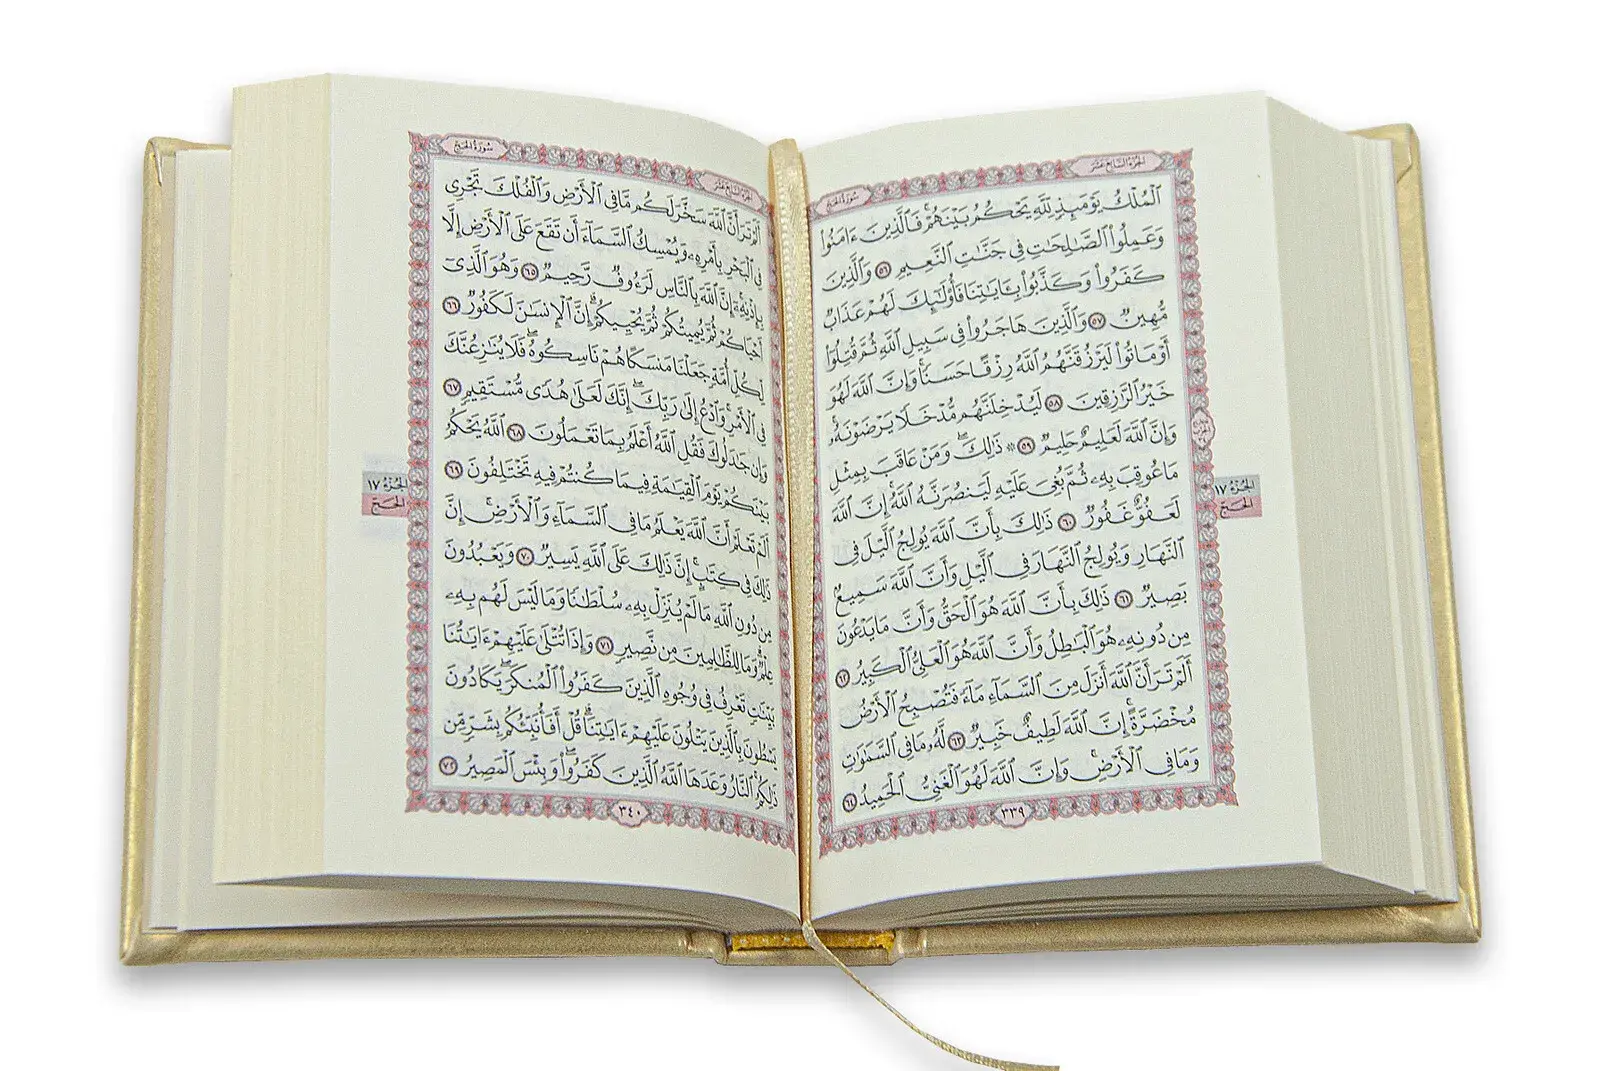 الجزء السابع عشر
سورة الحج
ٱلْمُلْكُ يَوْمَئِذٍ لِّلَّهِ يَحْكُمُ بَيْنَهُمْ ۚ فَٱلَّذِينَ ءَامَنُوا۟
وَعَمِلُوا۟ ٱلصَّـٰلِحَـٰتِ فِى جَنَّـٰتِ ٱلنَّعِيمِ ٥٦ وَٱلَّذِينَ
كَفَرُوا۟ وَكَذَّبُوا۟ بِـَٔايَـٰتِنَا فَأُو۟لَـٰٓئِكَ لَهُمْ عَذَابٌ
مُّهِينٌ ٥٧ وَٱلَّذِينَ هَاجَرُوا۟ فِى سَبِيلِ ٱللَّهِ ثُمَّ قُتِلُوٓا۟
أَوْ مَاتُوا۟ لَيَرْزُقَنَّهُمُ ٱللَّهُ رِزْقًا حَسَنًا ۚ وَإِنَّ ٱللَّهَ لَهُوَ
خَيْرُ ٱلرَّٰزِقِينَ ٥٨ لَيُدْخِلَنَّهُم مُّدْخَلًا يَرْضَوْنَهُۥ ۗ
وَإِنَّ ٱللَّهَ لَعَلِيمٌ حَلِيمٌ ٥٩ ۞ ذَٰلِكَ ۖ وَمَنْ عَاقَبَ بِمِثْلِ
مَا عُوقِبَ بِهِۦ ثُمَّ بُغِىَ عَلَيْهِ لَيَنصُرَنَّهُ ٱللَّهُ ۗ إِنَّ ٱللَّهَ
لَعَفُوٌّ غَفُورٌ ٦٠ ذَٰلِكَ بِأَنَّ ٱللَّهَ يُولِجُ ٱلَّيْلَ فِى
ٱلنَّهَارِ وَيُولِجُ ٱلنَّهَارَ فِى ٱلَّيْلِ وَأَنَّ ٱللَّهَ سَمِيعٌۢ
بَصِيرٌ ٦١ ذَٰلِكَ بِأَنَّ ٱللَّهَ هُوَ ٱلْحَقُّ وَأَنَّ مَا يَدْعُونَ
مِن دُونِهِۦ هُوَ ٱلْبَـٰطِلُ وَأَنَّ ٱللَّهَ هُوَ ٱلْعَلِىُّ ٱلْكَبِيرُ ٦٢
أَلَمْ تَرَ أَنَّ ٱللَّهَ أَنزَلَ مِنَ ٱلسَّمَآءِ مَآءً فَتُصْبِحُ ٱلْأَرْضُ
مُخْضَرَّةً ۗ إِنَّ ٱللَّهَ لَطِيفٌ خَبِيرٌ ٦٣ لَّهُۥ مَا فِى ٱلسَّمَـٰوَٰتِ
وَمَا فِى ٱلْأَرْضِ ۗ وَإِنَّ ٱللَّهَ لَهُوَ ٱلْغَنِىُّ ٱلْحَمِيدُ ٦٤
٣٣٩
الجزء ١٧
الحج
الجزء السابع عشر
سورة الحج
أَلَمْ تَرَ أَنَّ ٱللَّهَ سَخَّرَ لَكُم مَّا فِى ٱلْأَرْضِ وَٱلْفُلْكَ تَجْرِى
فِى ٱلْبَحْرِ بِأَمْرِهِۦ وَيُمْسِكُ ٱلسَّمَآءَ أَن تَقَعَ عَلَى ٱلْأَرْضِ إِلَّا
بِإِذْنِهِۦٓ ۗ إِنَّ ٱللَّهَ بِٱلنَّاسِ لَرَءُوفٌ رَّحِيمٌ ٦٥ وَهُوَ ٱلَّذِىٓ
أَحْيَاكُمْ ثُمَّ يُمِيتُكُمْ ثُمَّ يُحْيِيكُمْ ۗ إِنَّ ٱلْإِنسَـٰنَ لَكَفُورٌ ٦٦
لِّكُلِّ أُمَّةٍ جَعَلْنَا مَنسَكًا هُمْ نَاسِكُوهُ ۖ فَلَا يُنَـٰزِعُنَّكَ
فِى ٱلْأَمْرِ ۚ وَٱدْعُ إِلَىٰ رَبِّكَ ۖ إِنَّكَ لَعَلَىٰ هُدًى مُّسْتَقِيمٍ ٦٧
وَإِن جَـٰدَلُوكَ فَقُلِ ٱللَّهُ أَعْلَمُ بِمَا تَعْمَلُونَ ٦٨ ٱللَّهُ يَحْكُمُ
بَيْنَكُمْ يَوْمَ ٱلْقِيَـٰمَةِ فِيمَا كُنتُمْ فِيهِ تَخْتَلِفُونَ ٦٩
أَلَمْ تَعْلَمْ أَنَّ ٱللَّهَ يَعْلَمُ مَا فِى ٱلسَّمَآءِ وَٱلْأَرْضِ ۗ إِنَّ
ذَٰلِكَ فِى كِتَـٰبٍ ۚ إِنَّ ذَٰلِكَ عَلَى ٱللَّهِ يَسِيرٌ ٧٠ وَيَعْبُدُونَ
مِن دُونِ ٱللَّهِ مَا لَمْ يُنَزِّلْ بِهِۦ سُلْطَـٰنًا وَمَا لَيْسَ لَهُم بِهِۦ
عِلْمٌ ۗ وَمَا لِلظَّـٰلِمِينَ مِن نَّصِيرٍ ٧١ وَإِذَا تُتْلَىٰ عَلَيْهِمْ ءَايَـٰتُنَا
بَيِّنَـٰتٍ تَعْرِفُ فِى وُجُوهِ ٱلَّذِينَ كَفَرُوا۟ ٱلْمُنكَرَ ۖ يَكَادُونَ
يَسْطُونَ بِٱلَّذِينَ يَتْلُونَ عَلَيْهِمْ ءَايَـٰتِنَا ۗ قُلْ أَفَأُنَبِّئُكُم بِشَرٍّ مِّن
ذَٰلِكُمُ ۗ ٱلنَّارُ وَعَدَهَا ٱللَّهُ ٱلَّذِينَ كَفَرُوا۟ ۖ وَبِئْسَ ٱلْمَصِيرُ ٧٢
٣٤٠
الجزء ١٧
الحج